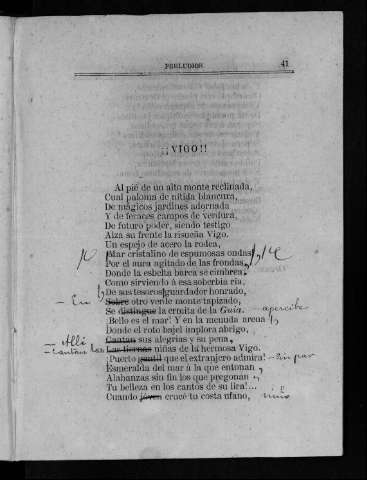 PRELUDIOS 41
¡¡VIGO!!
Al pié de un alto monte reclinada,
Cual paloma de nítida blancura,
De mágicos jardines adornada
Y de feraces campos de verdura,
De futuro poder, siendo testigo
Alza su frente la risueña Vigo.
Un espejo de acero la rodea,
Mar cristalino de espumosas ondas
Por el aura agitado de las frondas,
Donde la esbelta barca se cimbrea.
Como sirviendo á esa soberbia ria
De sus tesoros guardador honrado,
En Sobre otro verde monte tapizado,
Se distingue la ermita de la Guia. apercibe
¡Bello es el mar! Y en la menuda arena
Donde el roto bajel implora abrigo,
Allí Cantan sus alegrías y su pena
Cantan las Las tiernas niñas de la hermosa Vigo.
¡Puerto gentil que el extranjero admira! sin par
Esmeralda del mar á la que entonan
Alabanzas sin fin los que pregonan
Tu belleza en los cantos de su lira!...
Cuando jóven crucé tu costa ufano, niño